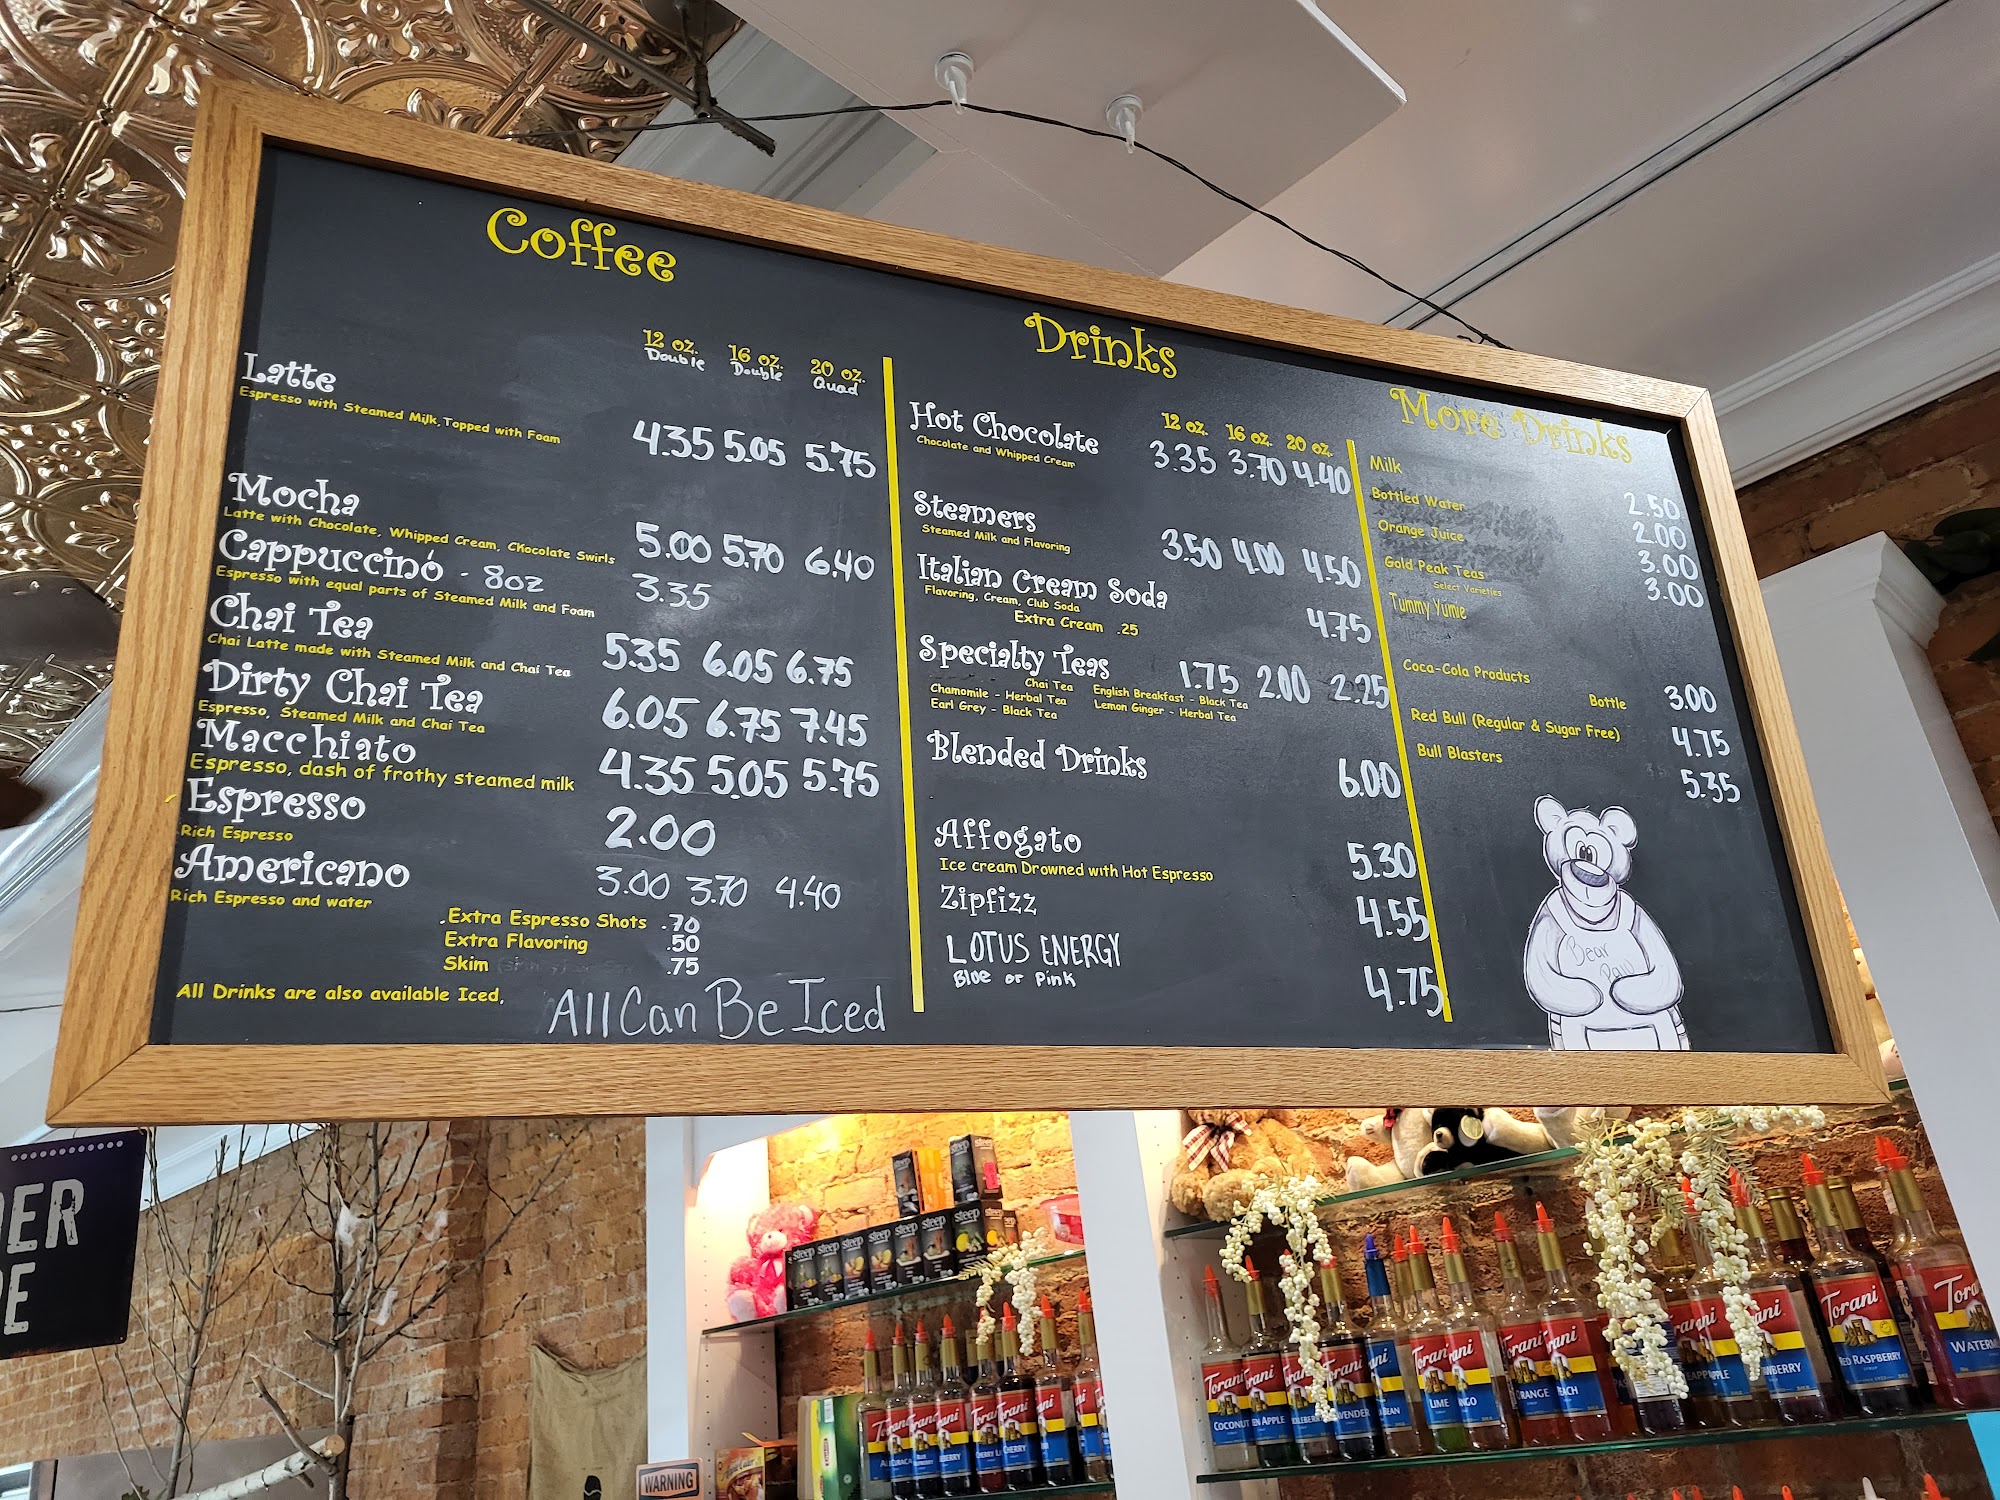 Coffee
12 oz. 16 oz. 20 oz.
Double Double Quad
Latte
Espresso with Steamed Milk, Topped with Foam
4.35 5.05 5.75
Mocha
Latte with Chocolate, Whipped Cream, Chocolate Swirls
5.00 5.70 6.40
Cappuccino - 8oz
3.35
Espresso with equal parts of Steamed Milk and Foam
Chai Tea
Chai Latte made with Steamed Milk and Chai Tea
5.35 6.05 6.75
Dirty Chai Tea
Espresso, Steamed Milk and Chai Tea
6.05 6.75 7.45
Macchiato
Espresso, dash of frothy steamed milk
4.35 5.05 5.75
Espresso
Rich Espresso
2.00
Americano
Rich Espresso and water
3.00 3.70 4.40
Extra Espresso Shots .70
Extra Flavoring .50
Skim .75
All Drinks are also available Iced.
All Can Be Iced
Drinks
12 oz. 16 oz. 20 oz.
Hot Chocolate
Chocolate and Whipped Cream
3.35 3.70 4.40
Steamers
Steamed Milk and Flavoring
3.50 4.00 4.50
Italian Cream Soda
Flavoring, Cream, Club Soda
Extra Cream .25
4.75
Specialty Teas
1.75 2.00 2.25
Chai Tea English Breakfast - Black Tea
Chamomile - Herbal Tea Lemon Ginger - Herbal Tea
Earl Grey - Black Tea
Blended Drinks
6.00
Affogato
Ice cream Drowned with Hot Espresso
5.30
Zipfizz
4.55
LOTUS ENERGY
Blue or Pink
4.75
More Drinks
Milk
2.50
Bottled Water
2.00
Orange Juice
3.00
Gold Peak Teas
3.00
Select Varieties
Tummy Yumie
Coca-Cola Products
Bottle 3.00
Red Bull (Regular & Sugar Free)
4.75
Bull Blasters
5.35
Bear
Paw
DER
WARNING
steep steep steep steep steep steep steep
Torani Torani Torani Torani
COCONUT
LAVENDER
LIME
RED RASPBERRY
CHERRY